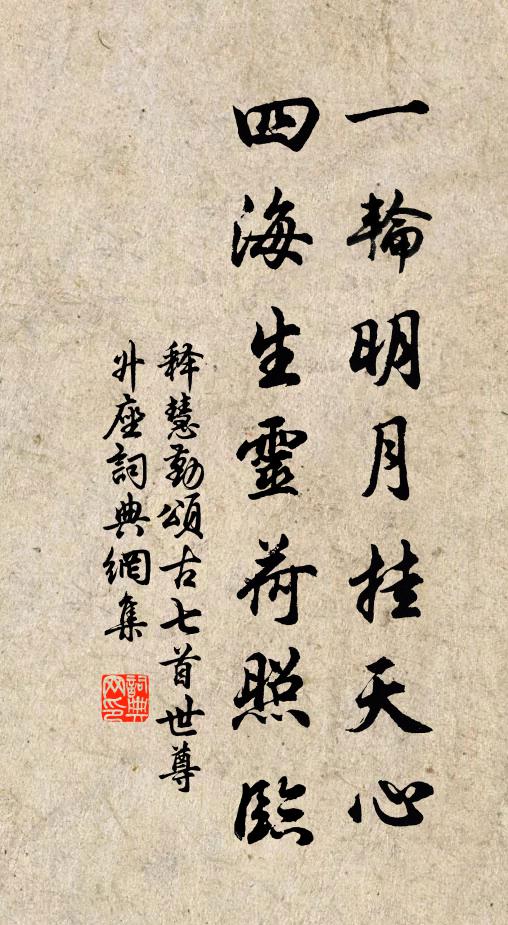 一輪明月挂天心
四海生靈荷照臨
釋慧勤頌古七首世尊
升座詞典網集
詞典
网印